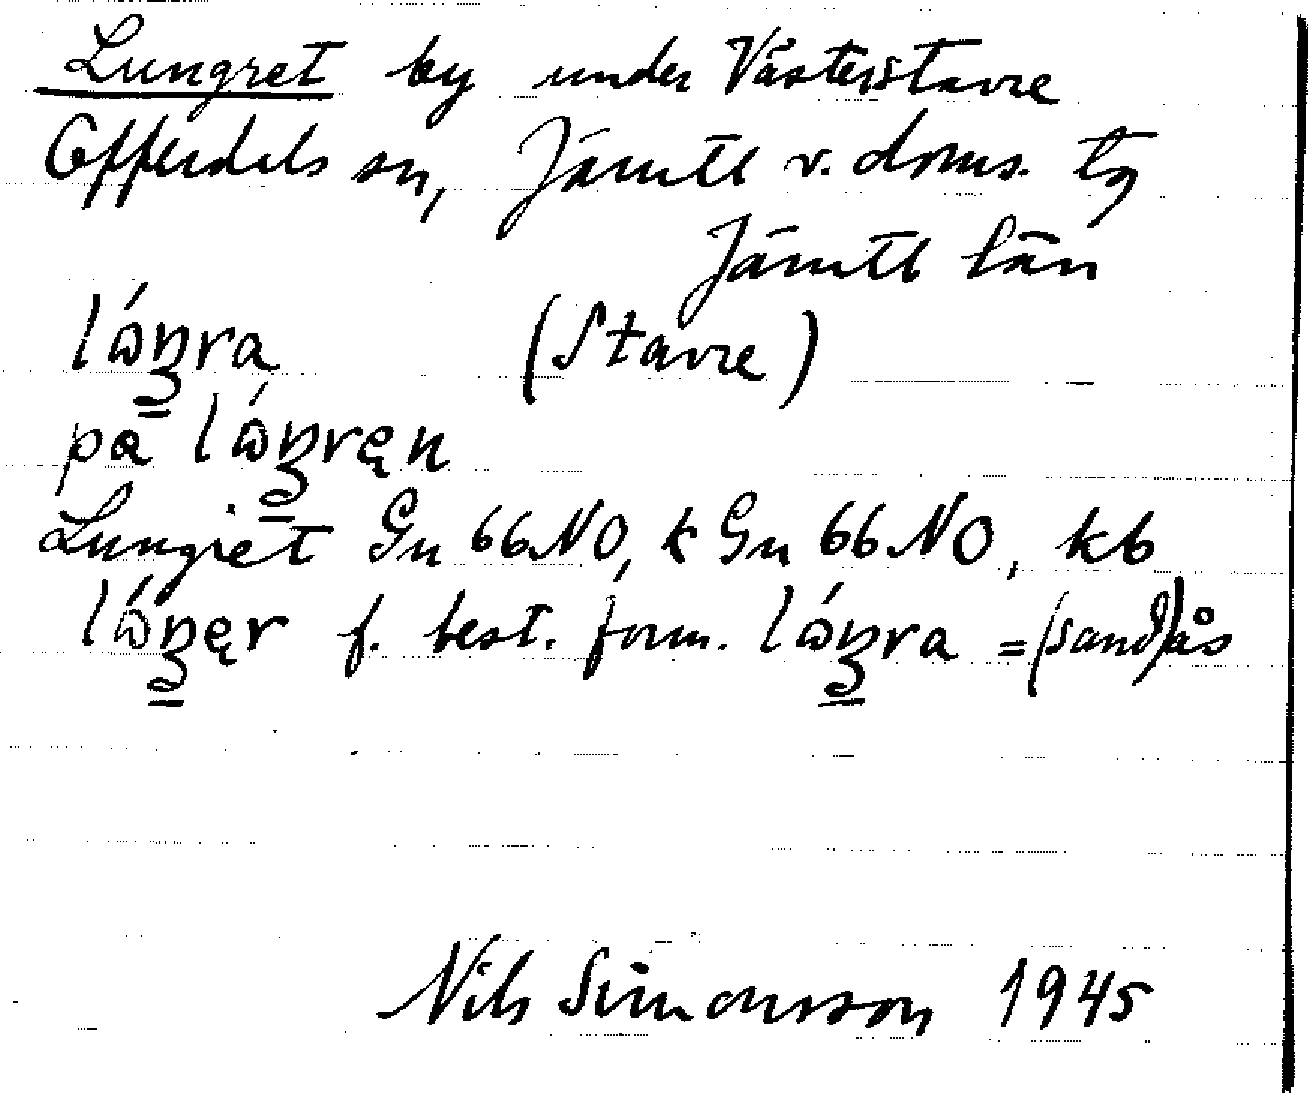 Lungret by under Västerstavre
Offerdals sn, Jämtl v. doms. tg
Jämtl län
(Stavre)
på
Lungret Gn 66 NO, k Gn 66 NO, kb
f. best. form. = (sand)ås
Nils Simonsson 1945